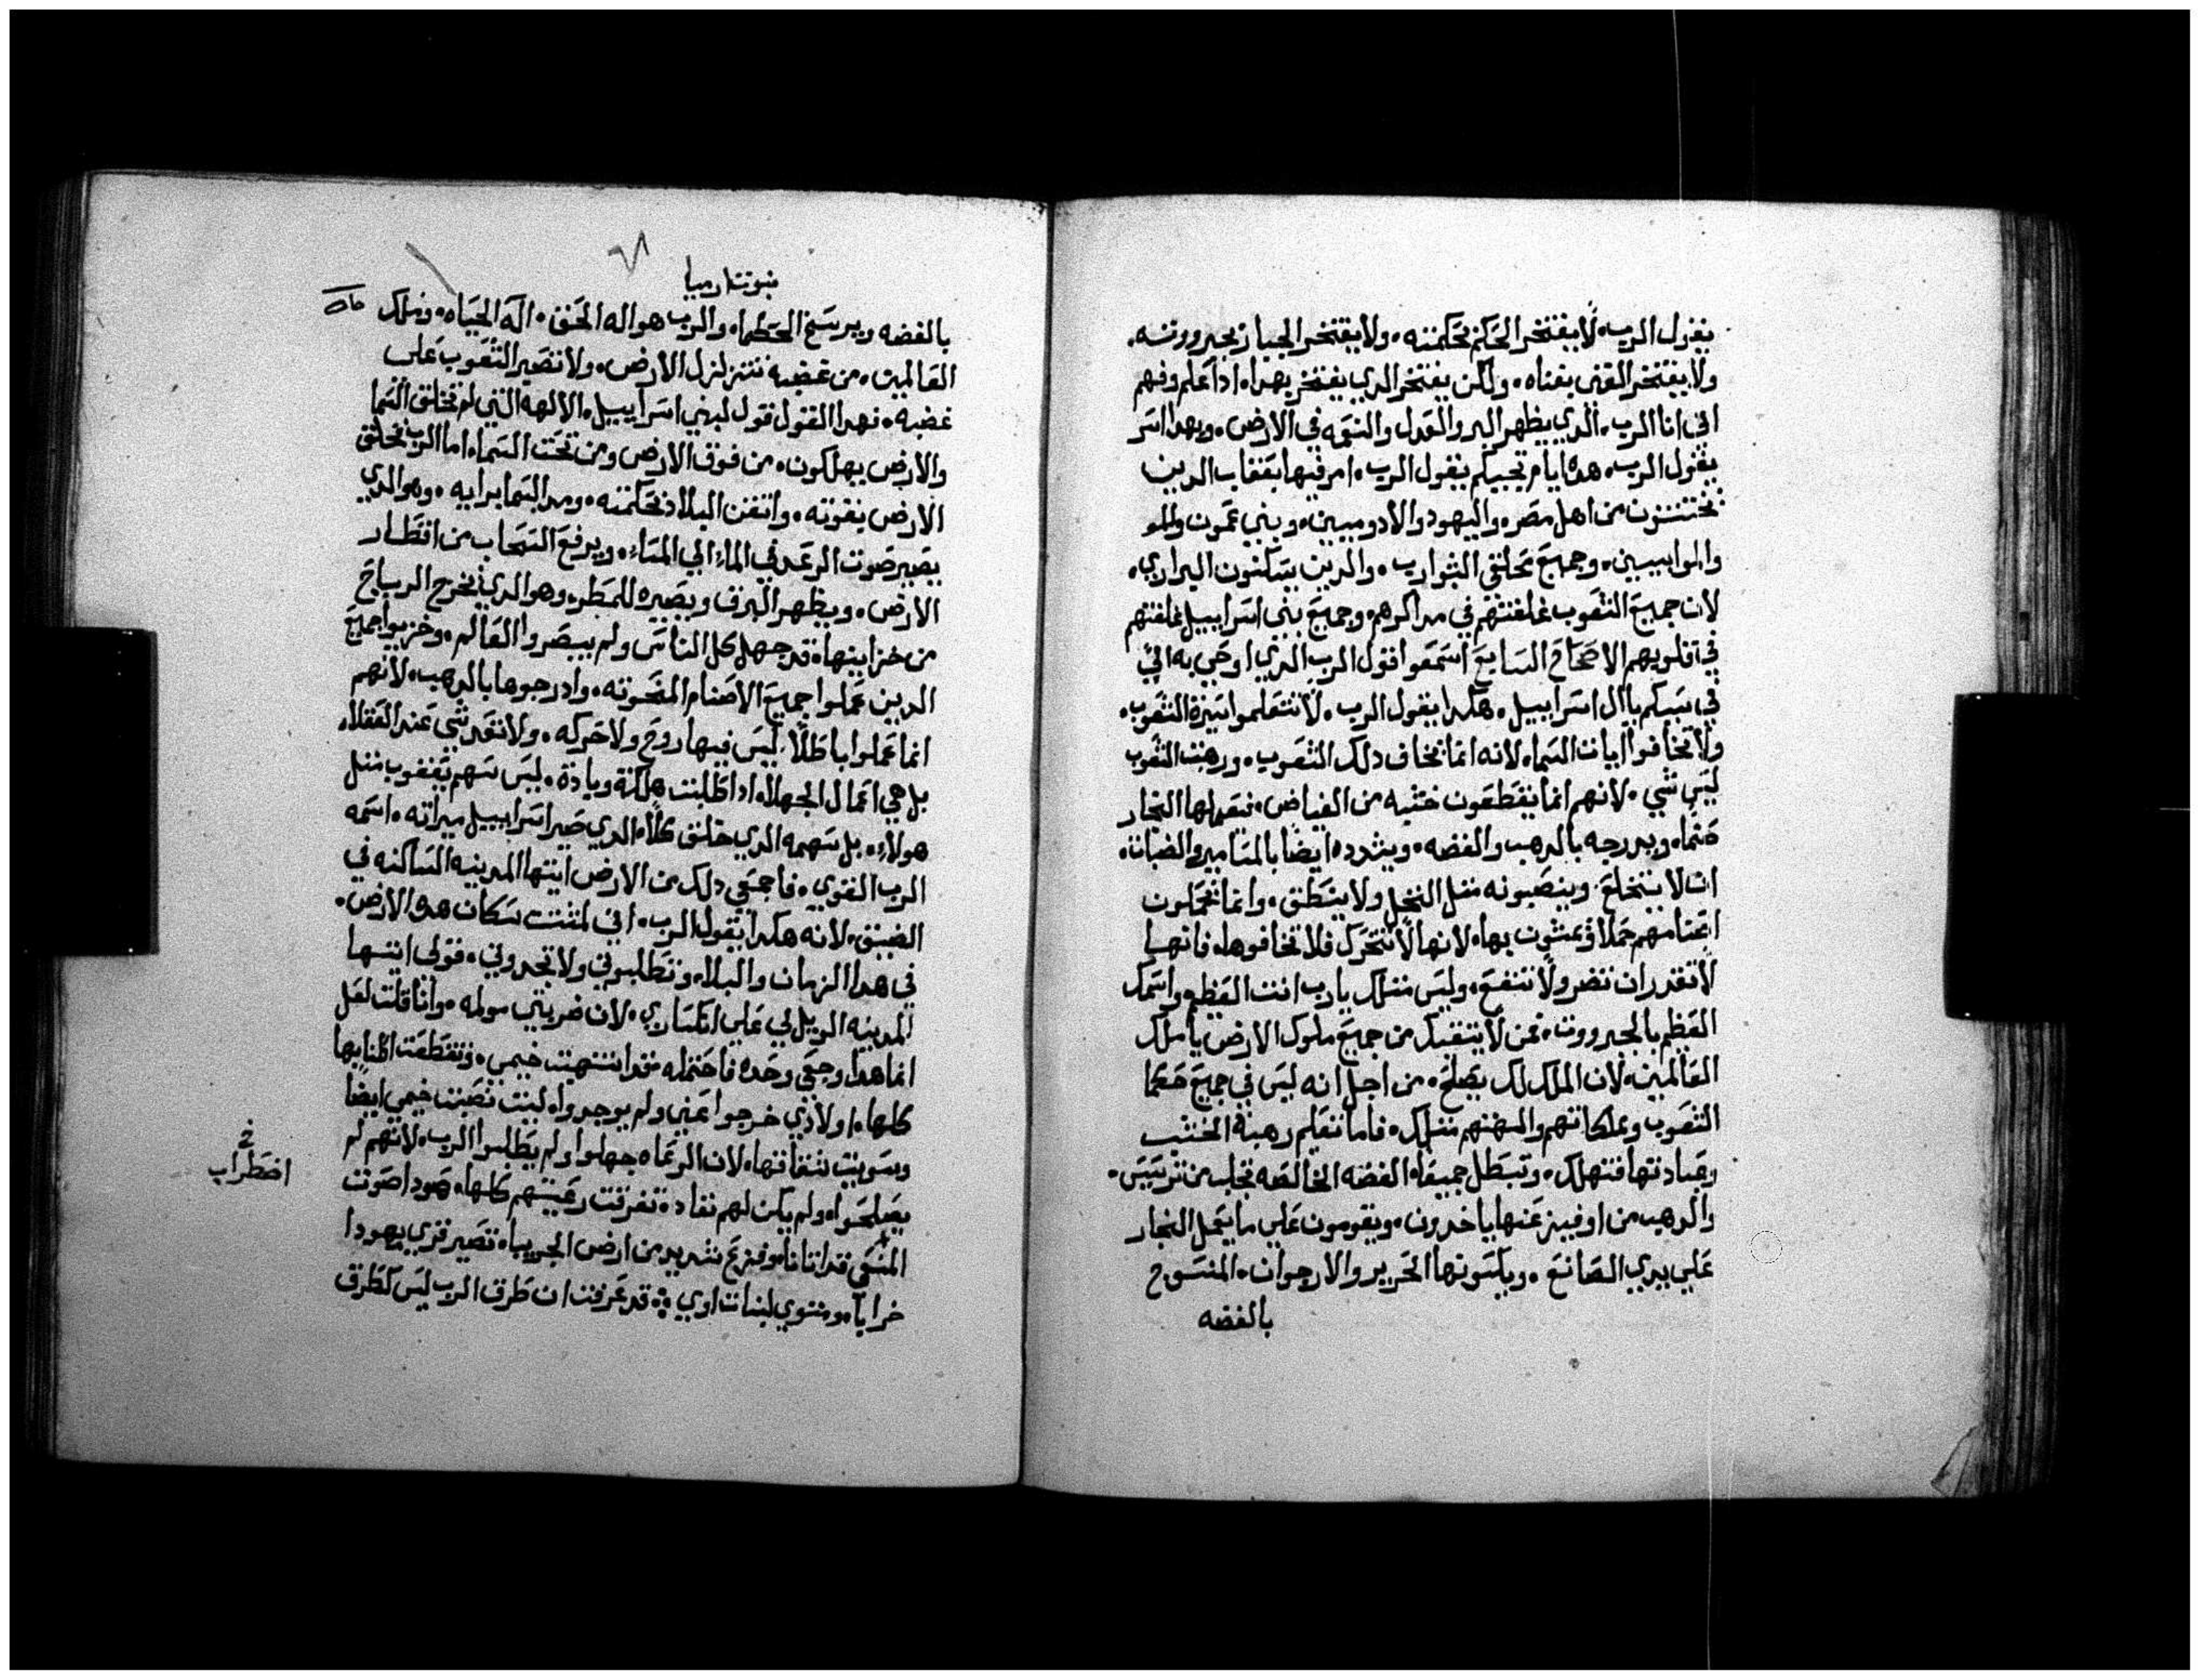 يقول الرب. لا يفتخر الحكيم بحكمته. ولا يفتخر الجبار بجبروته.
ولا يفتخر الغني بغناه. ولكن يفتخر الدي يفتخر بهدا. ادا علم وفهم
اني انا الرب. الدي يظهر البر والعدل والنعمه في الارض. وبهدا اسر
يقول الرب. هده ايام تجييكم يقول الرب. امر فيها بعقاب الدين
يختتنون من اهل مصر. واليهود والادوميين. وبني عمون
والموابيين. وجميع محلقي الشوارب. والدين يسكنون البراري.
لان جميع الشعوب غلفتهم في مداكرهم. وجميع بني اسراييل غلفتهم
في قلوبهم الاصحاح السابع اسمعوا قول الرب الدي اوحي به الي
في سبيكم ياال اسراييل. هكدا يقول الرب. لا تتعلموا سيرة الشعوب.
ولا تخافوا ايات السماء لانه انما يخاف دلك الشعوب. ورهبت الشعوب
ليس شي. لانهم انما يقطعون خشبه من الغياض. فيعملها النجار
صنماء ويدرجه بالدهب والفضه. ويشدده ايضا بالمسامير والضبات.
ان لا يتخلع. وينصبونه متل النخل ولا ينطق. وانما تحملون
اصنامهم حملا ويمشون بها. لانها لا تتحرك فلا تخافوها. فانها
لا تقدر ان تضر ولا تنفع. وليس متلك يارب انت العظيم واسمك
العظيم بالجبروت. فمن لا يتقيك من جميع ملوك الارض يا ملك
العالمين. لان الملك لك يصلح. من اجل انه ليس في جميع حكما
الشعوب ومملكاتهم والهتهم متلك. فاما تعليم رهبة الخشب
وعبادتها فتهلك. وتبطل جميعا. الفضه الخالصه تجلب من ترسيس.
والدهب من اوفيز عنها ياخدون. ويقومون علي ما يعمل النجار
علي يدي الصانع. ويلبسونها الحرير والارجوان. المنسوج
بالفضه
نبوت ارميا
بالفضه ويرسخ الحكما. والرب هو اله الحق. اله الحياه. وملك
العالمين. من غضبه تتزلزل الارض. ولا تصبر الشعوب على
غضبه. فهدا القول قول لبني اسراييل. الالهه التي لم تخلق السما
والارض يهلكون. من فوق الارض ومن تحت السماء اما الرب خلق
الارض بقوته. واتقن البلاد بحكمته. ومد السما برايه. وهو الدي
يصير صوت الرعد في الماء الي السماء. ويرفع السحاب من اقطار
الارض. ويظهر البرق ويصيره للمطر. وهو الدي يخرج الرياح
من خزاينها. قد جهل كل الناس ولم يبصروا العالم. وخزيوا جميع
الدين عملوا جميع الاصنام المنحوته. وادرجوها بالدهب. لانهم
انما عملوا باطلا. ليس فيها روح ولا حركه. ولا تعد شي عند العقلا.
بل هي اعمال الجهلا. ادا طلبت هلكة وبادة. ليس سهم يعقوب متل
هولاء. بل سهمه الدي خلق كلا. الدي صير اسراييل ميراته. اسمه
الرب القوي. فاجمعي دلك من الارض ايتها المدينه الساكنه في
الضيق. لانه هكدا يقول الرب. اني لمشتت سكان هده الارض.
في هدا الزمان والبلاء وتطلبوني ولا تجدوني. فقولي ايتها
المدينه الويل لي علي انكساري. لان ضربتي مولمه. وانا قلت لعل
انما هدا وجعي وحده فاحتمله فقد انتهبت خيمي. وتقطعت اطنابها
كلها. اولادي خرجوا عني ولم يوجدوا. ليت نصبت خيمي ايضا
وسويت شقاقها. لان الرعاه جهلوا ولم يطلبوا الرب. لانهم لم
يصلحوا. ولم يكن لهم نفادة تفرقت رعيتهم كلها. هودا صوت
المسعي قد اتانا وفزع شديد من ارض الجربيا. تصير قري يهودا
خرابا. ومتوي لبنات اوي. قد عرفت ان طرق الرب ليس كطرق
خ
اضطراب